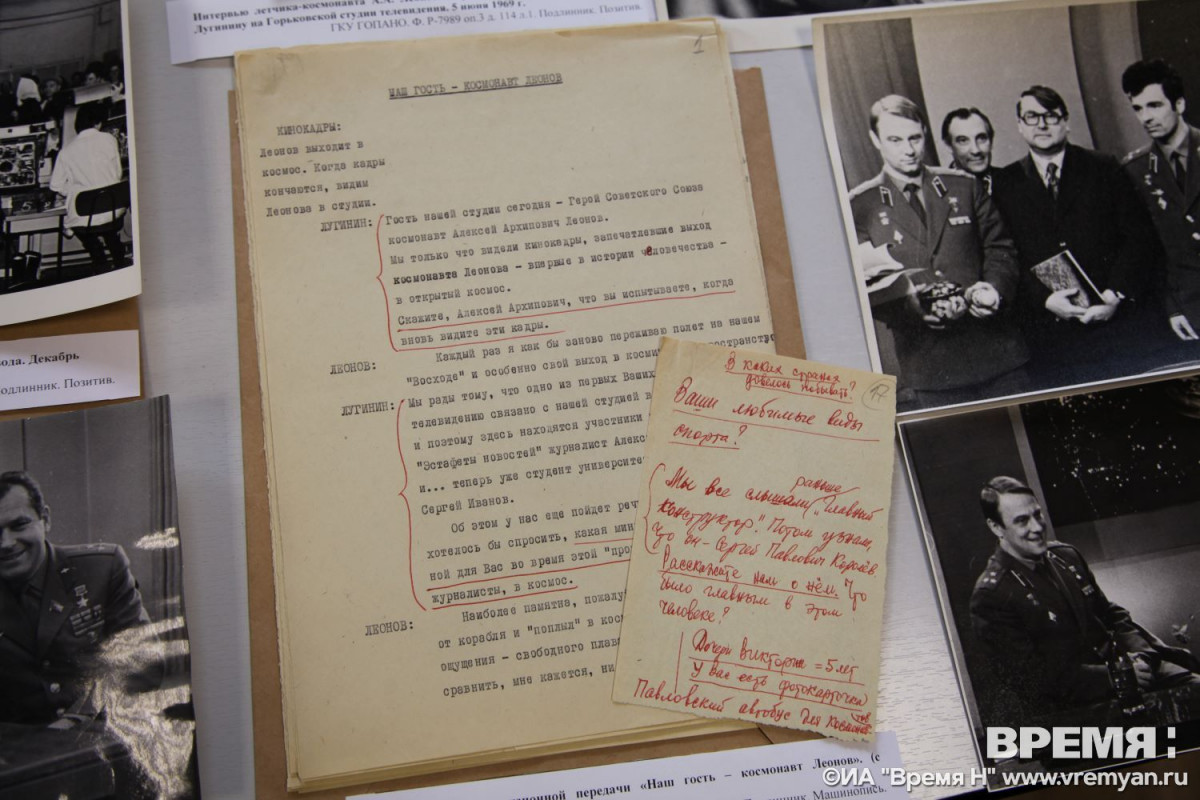 Интервью летчика-космонавта А.А.
Лугинину на Горьковской студии телевидения. 5 июня 1969 г.
ГКУ ГОПАНО. Ф. Р-7989 оп.3 д. 114 л.1. Подлинник. Позитив.
1
НАШ ГОСТЬ - КОСМОНАВТ ЛЕОНОВ
КИНОКАДРЫ:
Леонов выходит в
космос. Когда кадры
кончаются, видим
Леонова в студии.
ЛУГИНИН: Гость нашей студии сегодня - Герой Советского Союза
космонавт Алексей Архипович Леонов.
Мы только что видели кинокадры, запечатлевшие выход
космонавта Леонова - впервые в истории человечества -
в открытый космос.
Скажите, Алексей Архипович, что вы испытываете, когда
вновь видите эти кадры.
ЛЕОНОВ: Каждый раз я как бы заново переживаю полет на нашем
"Восходе" и особенно свой выход в косми
ЛУГИНИН: Мы рады тому, что одно из первых Ваших
телевидению связано с нашей студией в
и поэтому здесь находятся участники
"Эстафеты новостей" журналист Алекс
и... теперь уже студент университе
Сергей Иванов.
Об этом у нас еще пойдет реч
хотелось бы спросить, какая мин
ной для Вас во время этой "про
журналисты, в космос.
ЛЕОНОВ: Наиболее памятна, пожалу
от корабля и "поплыл" в кос
ощущения - свободного плав
сравнить, мне кажется, ни
В каких странах
довелось побывать?
17
Ваши любимые виды
спорта?
Мы все слышали раньше "Главный
конструктор". Потом узнали,
что он - Сергей Павлович Королёв.
Расскажите нам о нём. Что
было главным в этом
человеке?
Дочери Виктории = 5 лет
У вас есть фотокарточка
Павловский автобус для космонавтов
вода. Декабрь
Подлинник. Позитив.
ционной передачи «Наш гость – космонавт Леонов». (с
Машинопись.
ВРЕМЯ:
©ИА "Время Н" www.vremyan.ru